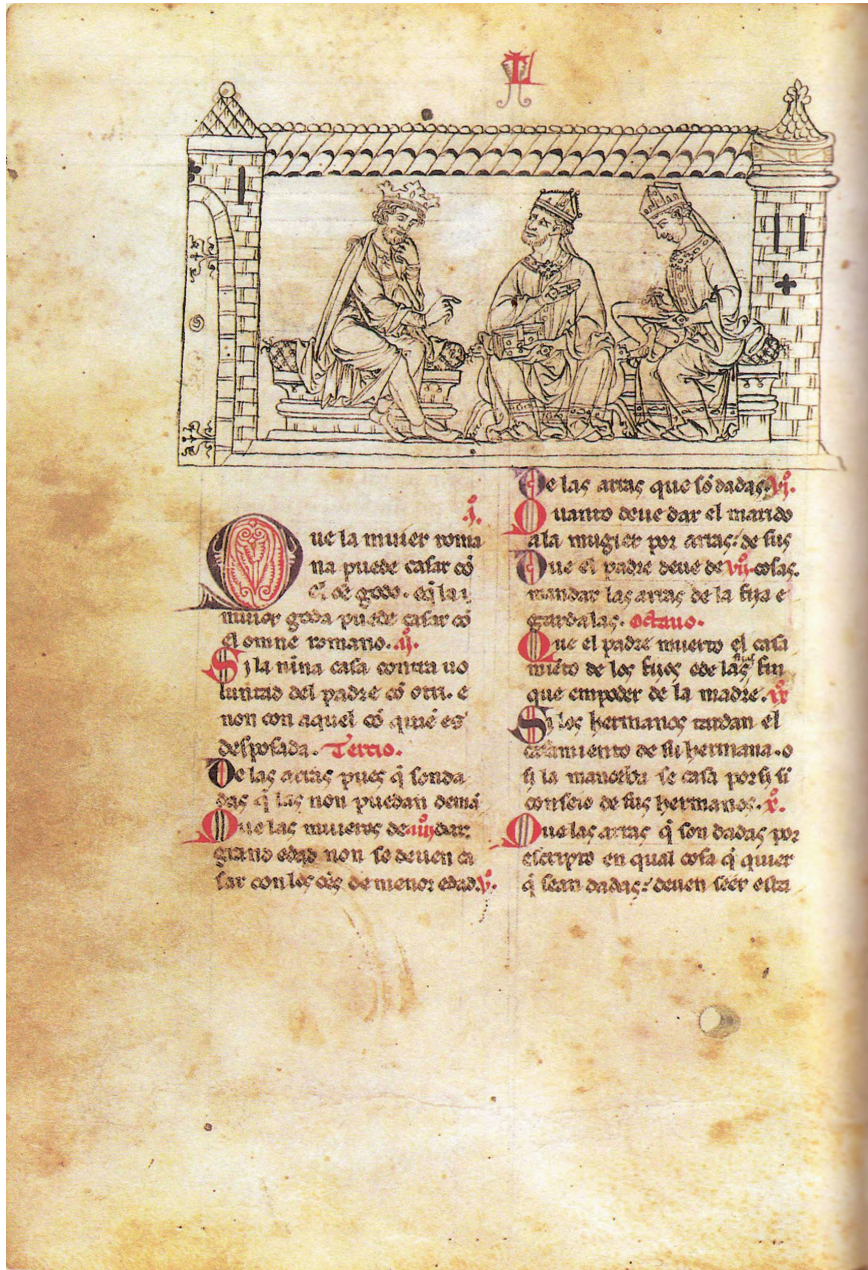 L
j.
Que la muier roma
na puede casar cõ
el oẽ godo. eq̃ la
muier goda puede casar cõ
el omne romano. ij.
Si la nina casa contra uo
luntad del padre cõ otri. e
non con aquel cõ quiẽ es
desposada. Tercio.
De las arras pues q̃ son da
das q̃ las non puedan demã
dar iiijº
Que las muieres de
grand edad non se deuen ca
sar con los oẽs de menor edad. v.
De las arras que sõ dadas. vj.
Quanto deue dar el marido
ala mugier por arras: de sus
cosas. vij
Que el padre deue de
mandar las arras de la fija e
gardalas. octauo.
Que el padre muerto el casa
miẽto de los fijos e de las fijas
que en poder de la madre. ix
Si los hermanos tardan el
casamiento de su hermana. o
si la manceba se casa por si si
conseio de sus hermanos. x.
Que las arras q̃ son dadas por
escripto en qual cosa q̃ quier
q̃ sean dadas: deuen seer esta